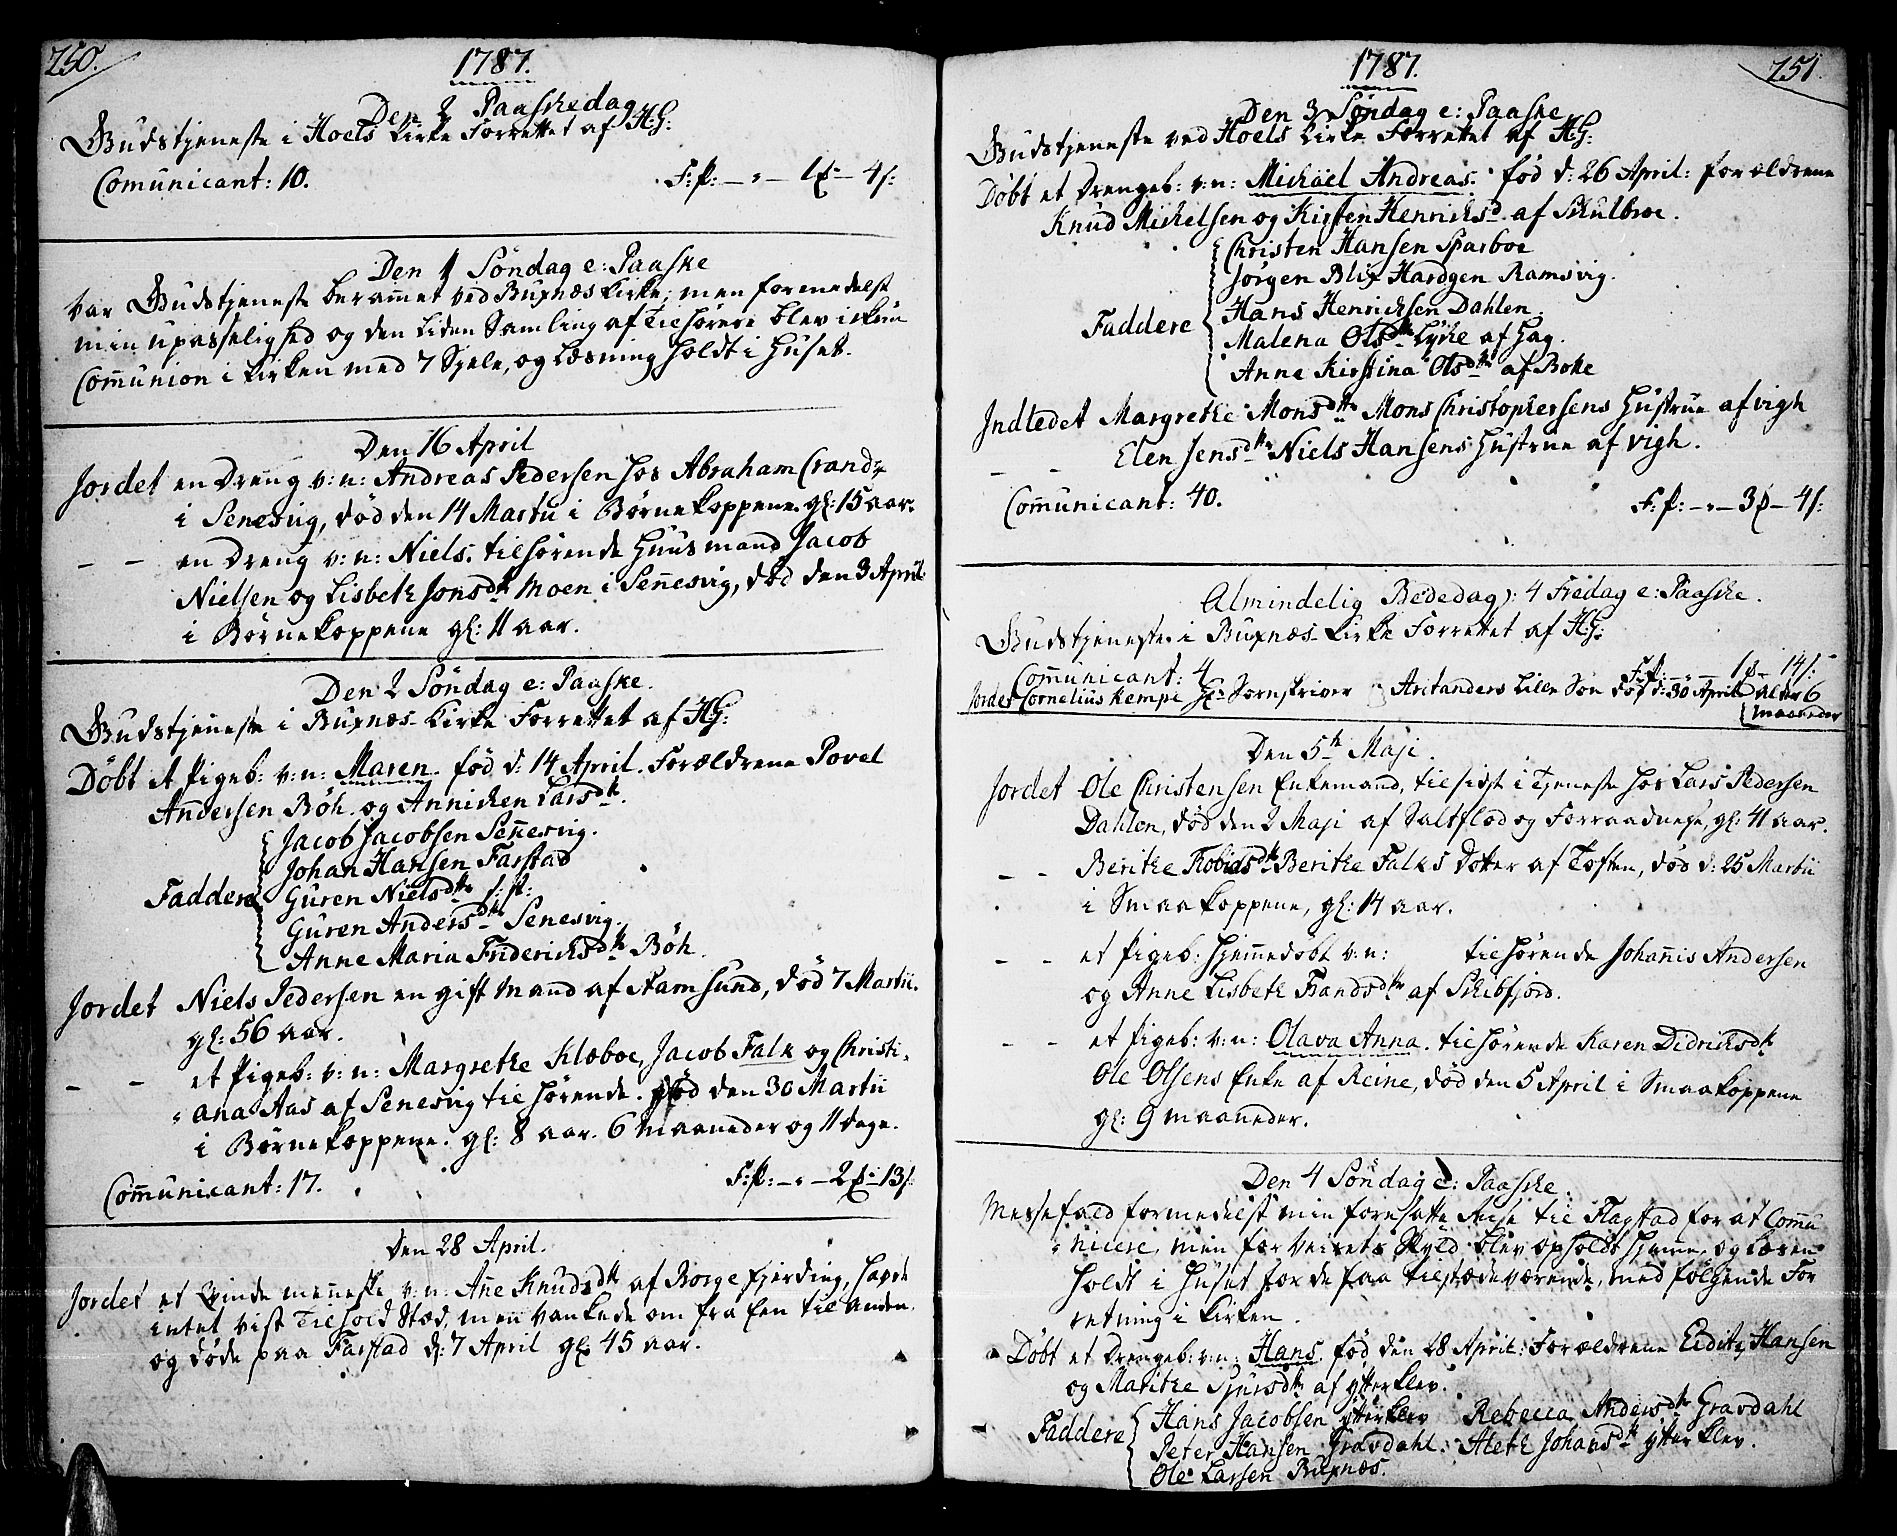 250.
1787.
Den 2 Paaskedag
Gudstjeneste i Hoels Kirke Forrettet af H:G:
Comunicant: 10. F:P: — " — 4 s:
Den 1 Søndag e: Paaske
Var Gudstjeneste berammet ved Buxnæs Kirke; men formedelst
min upasselighed og den liden Samling af Tilhørere blev ickun
Communion i Kirken med 7 Sjele, og Læsning holdt i Huset.
Den 16 April
Jordet en Dreng v: n: Andreas Pedersen hos Abraham
i Senesvig, død den 14 Martii i Børnekoppene. gl: 15 aar.
— — en Dreng v: n: Niels. tilhørende Huusmand Jacob
Nielsen og Lisbeth Jonsdtr Moen i Sennesvig, død den 3 April
i Børnekoppene gl: 11 aar.
Den 2 Søndag e: Paaske.
Gudstjeneste i Buxnæs Kirke Forrettet af H:G:
Døbt et Pigeb: v: n: Maren. fød d: 14 April. Forældrene Povel
Andersen Bøh. og Annichen Larsdtr.
Jacob Jacobsen Sennesvig.
Johan Hansen Farstad
Faddere Guren Nielsdtr
Guren Andersdtr Senesvig.
Anne Maria Friderichsdtr Bøh.
Jordet Niels Pedersen en gift Mand af Stamsund, død 7 Martii.
gl: 56 aar.
— — et Pigeb: v: n: Margrethe Klæboe, Jacob Falk og Christi-
ana Aas af Senesvig tilhørende. død den 30 Martii
i Børnekoppene. gl: 8 aar. 6 Maaneder og 11 dage.
Comunicant: 17. F:P: — " — 2 — 13 s:
Den 28 April.
Jordet et Qvinde menneske v: n: Ane Knudsdtr af Borge Fjerding, hafde
intet vist Tilhold Stæd, men vankede om fra Een til Anden.
og døde paa Farstad d: 7 April gl: 45 aar.
251
1787.
Den 3 Søndag e: Paaske
Gudstjeneste ved Hoels Kirke Forrettet af H:G:
Døbt et Drengeb: v: n: Michael Andreas. fød d: 26 April: forældrene
Knud Michelsen og Kirsten Henrichsd. af Skulbroe.
Christen Hansen Sparboe
Jørgen Blix Hardgen Ramsvig.
Faddere Hans Henrichsen Dahlen.
Malena Olsdtr Lyche af Hag.
Anne Kirstina Olsdtr af Bolle
Indledet Margrethe Monsdtr Mons Christophersens Hustrue af Vigh
— — Elen Jensdtr Niels Hansens Hustrue af Vigh.
Comunicant: 40. F:P: — " — 3 — 4 s:
Almindelig Bededag: 4 Fredag e: Paaske.
Gudstjeneste i Buxnæs Kirke Forrettet af H:G:
Communicant: 4 F:P: — " — 1 — 14 s:
Jordet Cornelius Kempe Hr Sornskriver Arctanders lille Søn død d: 30 April Alder 6
Maaneder
Den 5te Maji.
Jordet Ole Christensen Enkemand, tilsidst i Tjeneste hos Lars Pedersen
Dahlen, død den 2 Maji af Saltflod og Forraadnelse, gl: 41 aar.
— — Berithe Tobiasdtr Berithe Falks Dotter af Toften, død d: 25 Martii
i Smaakoppene, gl: 14 aar.
— — et Pigeb: Hjemmedøbt v: n: tilhørende Johannis Andersen
og Anne Lisbeth Frandsdtr af Skibfjord.
— — et Pigeb: v: n: Olava Anna. tilhørende Karen Didrichsdtr
Ole Olsens Enke af Reine, død den 5 April i Smaakoppene
gl: 9 maaneder.
Den 4 Søndag e: Paaske.
Messefald formedelst min foresatte Reise til Flagstad for at Commu-
nicere, men for Veirets Skyld blev opholdt hjemme, og Læsen
holdt i Huset for de faa tilstædeværende, med følgende For-
retning i Kirken.
Døbt et Drengeb: v: n: Hans. fød den 28 April: Forældrene Hansen
og Marithe Sjursdtr af Ytterklev.
Faddere Hans Jacobsen Ytterklev Rebecca Andersdtr Gravdahl
Peter Hansen Gravdahl. Aleth Johansdtr Ytterklev.
Ole Larsen Buxnæs.